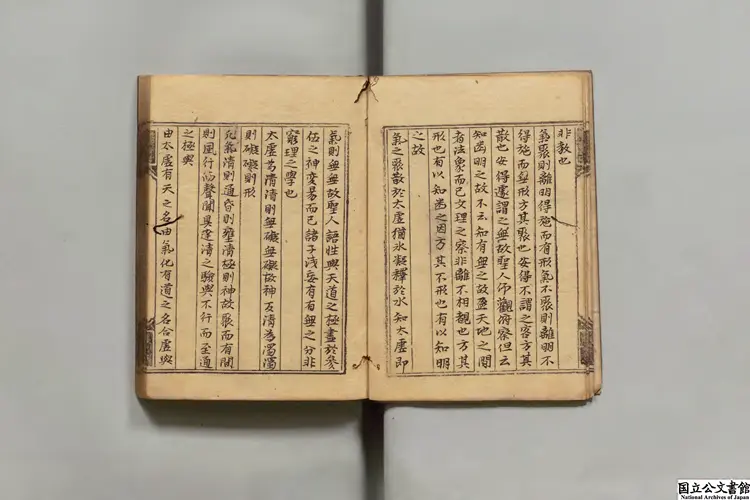 非教也
氣聚則離明得施而有形氣不聚則離明不
得施而無形方其聚也安得不謂之客方其
散也安得遽謂之無故聖人仰觀俯察但云
知幽明之故不云知有無之故盈天地之間
者法象而已文理之察非離不相覩也方其
形也有以知幽之因方其不形也有以知明
之故
氣之聚散於太虛猶氷凝釋於水知太虛即
氣則無無故聖人語性與天道之極盡於參
伍之神變易而已諸子淺妄有有無之分非
窮理之學也
太虛為清清則無礙無礙故神反清為濁濁
則礙礙則形
凡氣清則通昏則壅清極則神故聚而有間
則風行而聲聞具達清之驗與不行而至通
之極與
由太虛有天之名由氣化有道之名合虛與
国立公文書館
National Archives of Japan